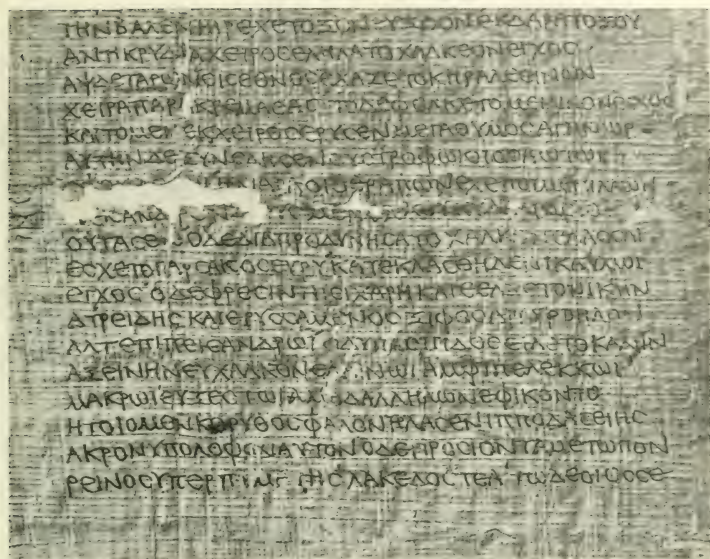 ΤΗΝΒΑΛΕΝΗΙΡΕΧΕΤΟΞΟΝΕΥΞΟΟΝΕΚΔΑΡΑΤΟΞΟΥ
ΑΝΤΙΚΡΥΔΙΑΧΕΙΡΟCΕΛΗΛΑΤΟΧΑΛΚΕΟΝΕΓΧΟC
ΑΨΔΕΤΑΡΩΝΟΙCΕΘΝΟCΕΧΑΖΕΤΟΚΗΡΑΛΕΕΙΝΩΝ
ΧΕΙΡΑΠΑΡ ΚΡΕΜΑCΑC ΤΟΔΕΦΕΛΚΕΤΟΜΕΙΛΙΝΟΝΕΓΧΟC
ΚΑΙΤΟΜΕΝ ΕΚΧΕΙΡΟCΕΡΥCΕΝΜΕΓΑΘΥΜΟCΑΓΗΝΩΡ
ΑΥΤΗΝΔΕΞΥΝΕΔΗCΕΝΕΥCΤΡΟΦΩΙΟΙΟCΑΩΤΩΙ
ΘΕΡΑΠΩΝΕΧΕΠΟΙΜΕΝΙΛΑΩΝ
CΑΝΔΡ
ΟΥΤΑCΕ ΟΔΕΔΙΑΠΡΟΔΥΝΗCΑΤΟΧΑΛΚΟΝΕΛΑCCΑΙ
ΕCΧΕΤΟΓΑΡCΑΚΟCΕΥΡΥΚΑΤΕΚΛΑCΘΗΔΕΝΙΚΑΥΛΩΙ
ΕΓΧΟCΟΔΕΦΡΕCΙΝΗΙCΙΧΑΡΗΚΑΙΕΕΛΠΕΤΟΝΙΚΗΝ
ΑΤΡΕΙΔΗCΚΑΙΕΡΥCCΑΜΕΝΟCΞΙΦΟCΑΡΓΥΡΟΗΛΟΝ
ΑΛΤΕΠΙΠΕΙCΑΝΔΡΩΙ ΟΔΥΠΑCΠΙΔΟCΕΙΛΕΤΟΚΑΛΗΝ
ΑΞΕΙΝΗΝΕΥΧΑΛΚΟΝΕΛΑΙΝΩΙΑΜΦΙΠΕΛΕΚΚΩΙ
ΜΑΚΡΩΙΕΥΞΕCΤΩΙΑΜΑΔΑΛΛΗΛΩΝΕΦΙΚΟΝΤΟ
ΗΤΟΙΟΜΕΝΚΟΡΥΘΟCΦΑΛΟΝΗΛΑCΕΝΙΠΠΟΔΑCΕΙΗC
ΑΚΡΟΝΥΠΟΛΟΦΟΝΑΥΤΟΝΟΔΕΠΡΟCΙΟΝΤΑΜΕΤΩΠΟΝ
ΡΕΙΝΟCΥΠΕΡΠΥΜΑΤΗCΛΑΚΕΔΟCΤΕΑ ΤΩΔΕΟΙΟCCΕ